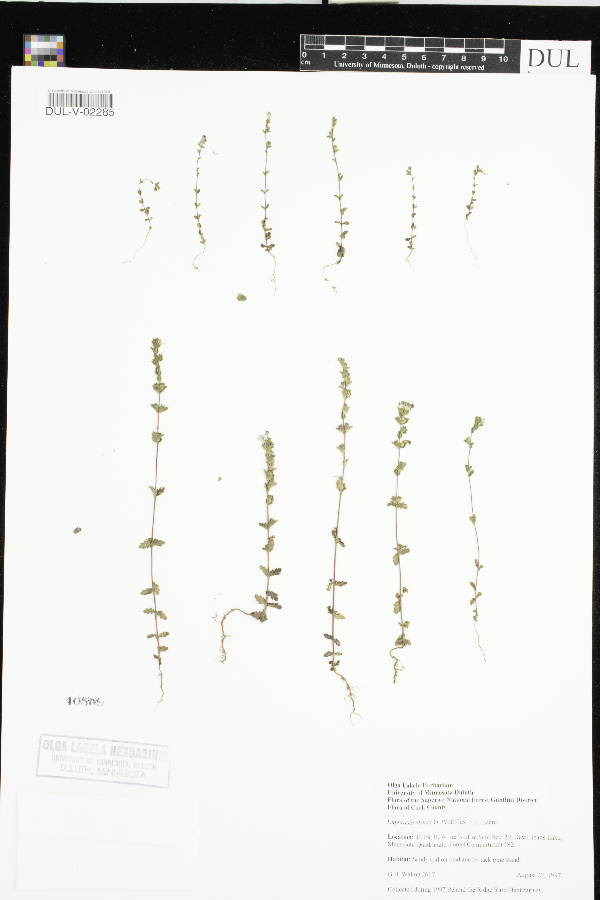 0 1 2 3 4 5 6 7 8 9 10
cm
University of Minnesota, Duluth - copyright reserved
DUL
DUL-V-02285
10569
OLGA LAKELA HERBARIUM
UNIVERSITY OF MINNESOTA, DULUTH
DULUTH, MINNESOTA
Olga Lakela Herbarium
University of Minnesota Duluth
Flora of the Superior National Forest Gunflint District
Flora of Cook County
Location:
Minnesota Quadrangle, Forest Compartment
Habitat: Sandy soil on roadside by jack pine stand.
G. J. Walton
August 1997
Collected during 1997 Behind the Ridge Rare Plant Survey.